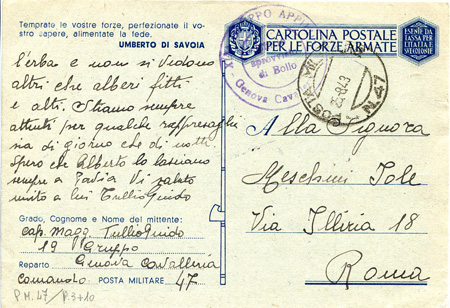 Temprate le vostre forze, perfezionate il vo-
stro sapere, alimentate la fede.
UMBERTO DI SAVOIA
l'erba e non si vedono
altri che alberi fitti
e alti. Stiamo sempre
attenti per qualche rappresaglia
sia di giorno che di notte.
Spero che Alberto lo lasciano
sempre a Pavia Vi saluto
unito a lui Tullio Guido
Grado, Cognome e Nome del mittente:
Cap. Magg. Tullio Guido
19 Gruppo
Reparto Genova Cavalleria
Comando POSTA MILITARE 47
P.M. 47 / P.3+10
CARTOLINA POSTALE
PER LE FORZE ARMATE
ESENTE DA
TASSA PER
L'ITALIA E
SUE COLONIE
GRUPPO
di Bollo
Genova Cav
POSTA MIL
N. 47
Alla Signora
Meschini Iole
Via Illiria 18
Roma